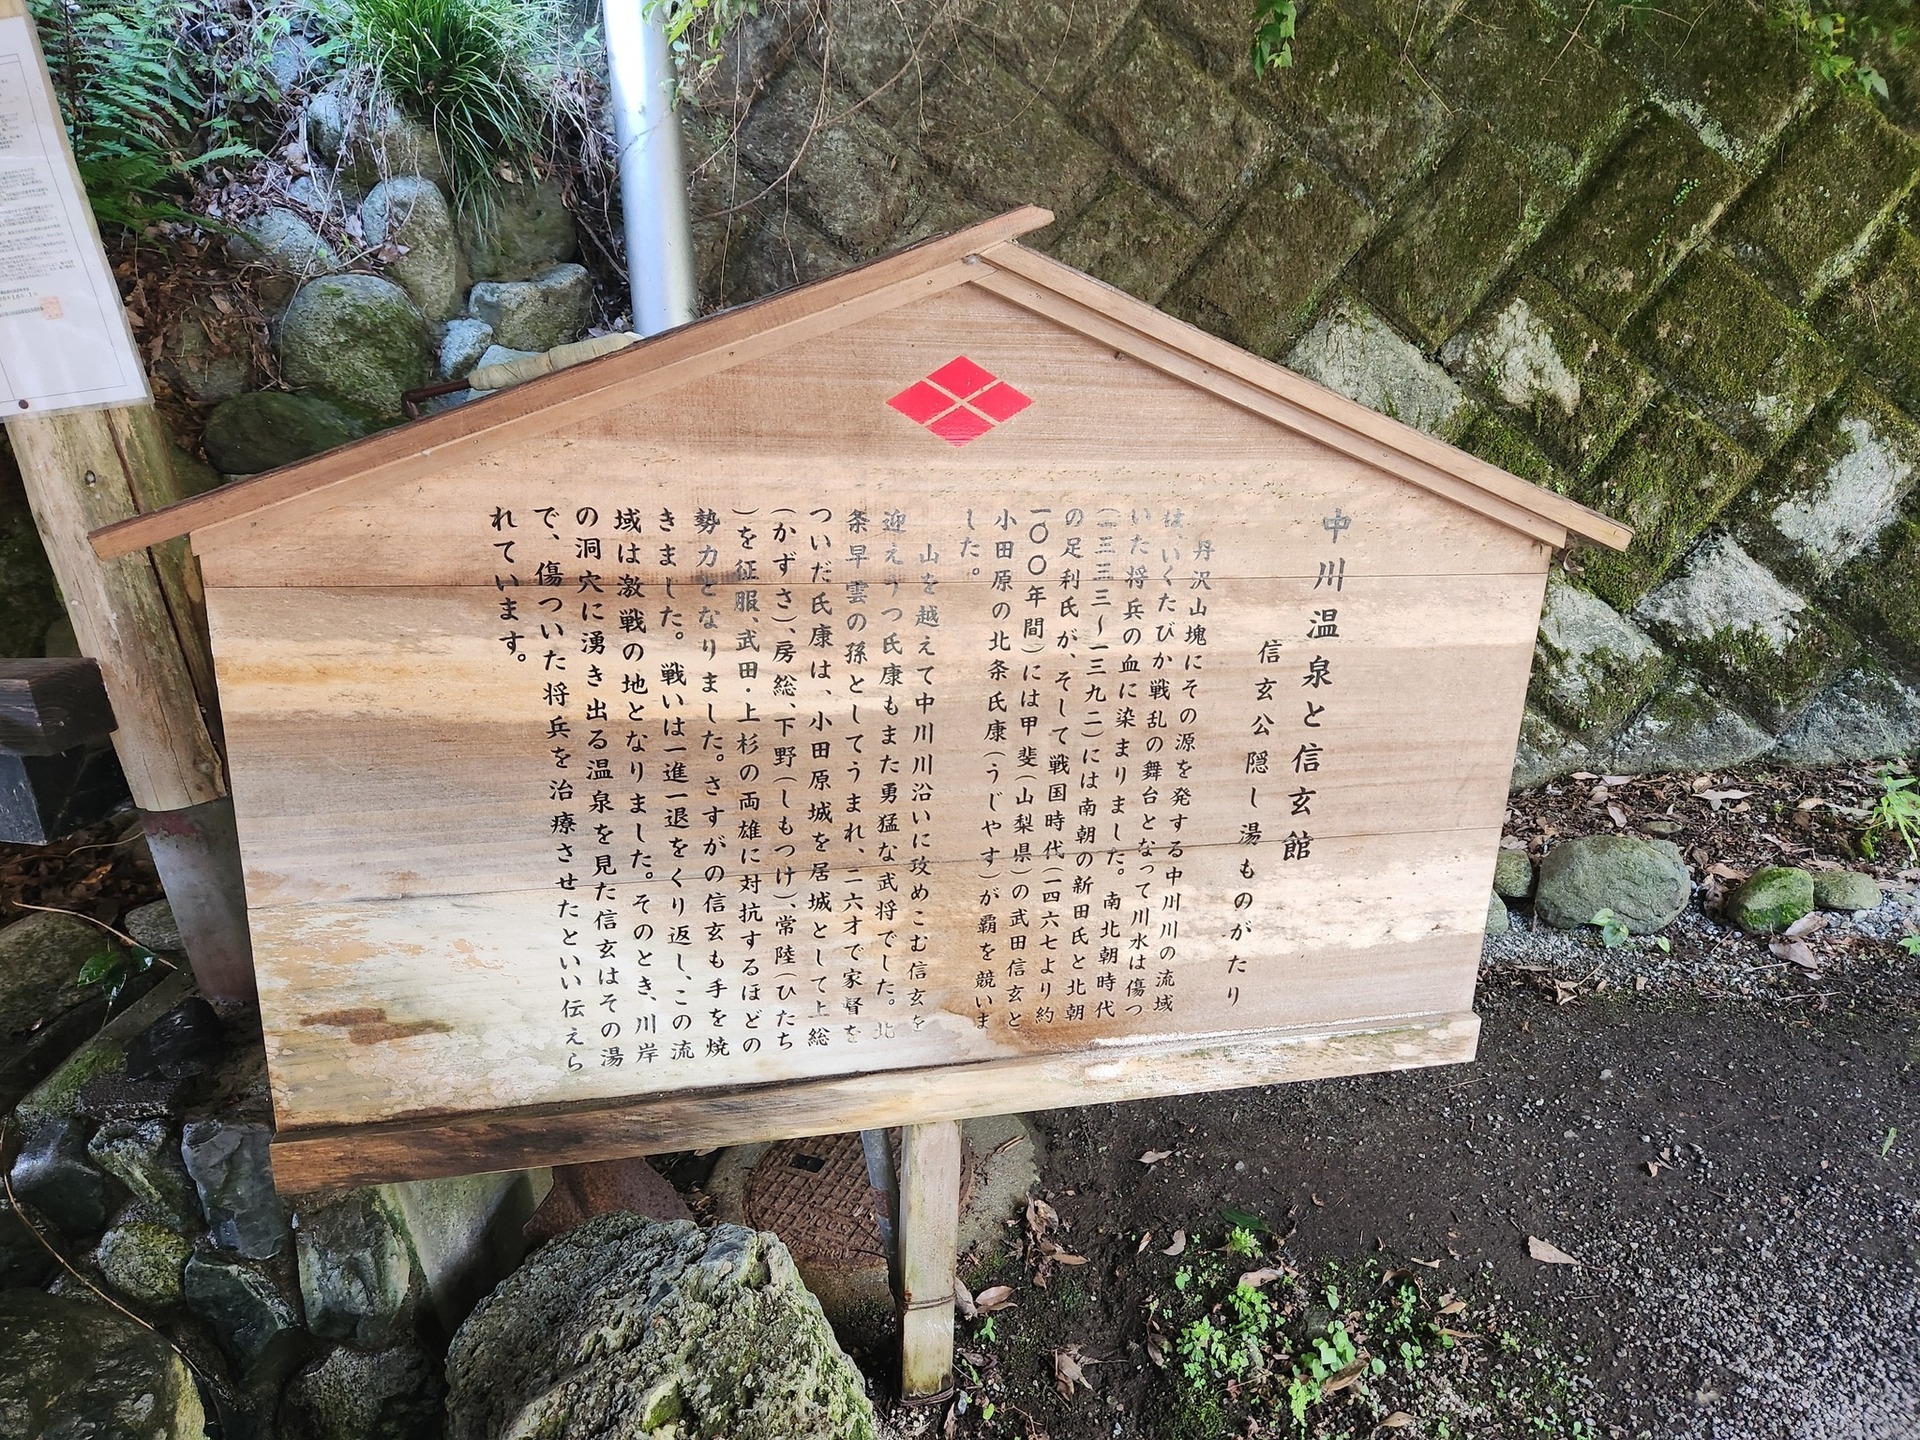 中川温泉と信玄館
信玄公隠し湯ものがたり
丹沢山塊にその源を発する中川川の流域
は、いくたびか戦乱の舞台となって川水は傷つ
いた将兵の血に染まりました。南北朝時代
(一三三三〜一三九二)には南朝の新田氏と北朝
の足利氏が、そして戦国時代(一四六七より約
一〇〇年間)には甲斐(山梨県)の武田信玄と
小田原の北条氏康(うじやす)が覇を競いま
した。
山を越えて中川川沿いに攻めこむ信玄を
迎えうつ氏康もまた勇猛な武将でした。北
条早雲の孫としてうまれ、二六才で家督を
ついだ氏康は、小田原城を居城として上総
(かずさ)、房総、下野(しもつけ)、常陸(ひたち
)を征服、武田・上杉の両雄に対抗するほどの
勢力となりました。さすがの信玄も手を焼
きました。戦いは一進一退をくり返し、この流
域は激戦の地となりました。そのとき、川岸
の洞穴に湧き出る温泉を見た信玄はその湯
で、傷ついた将兵を治療させたといい伝えら
れています。